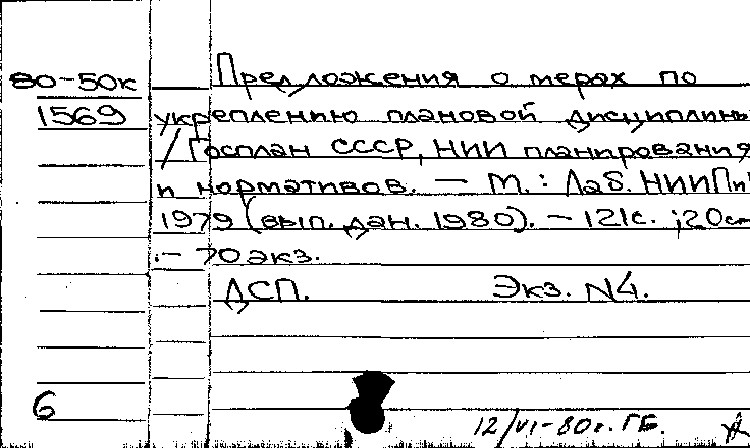 80-50к Предложения о мерах по
1569 укреплению плановой дисциплины
/ Госплан СССР, НИИ планирования
и нормативов. — М.: Лаб. НИИПиН
1979 (вып. дан. 1980). — 121с. ; 20см
.- 70 экз.
ДСП. Экз. N4.
6
12/VI-80г. ГБ.